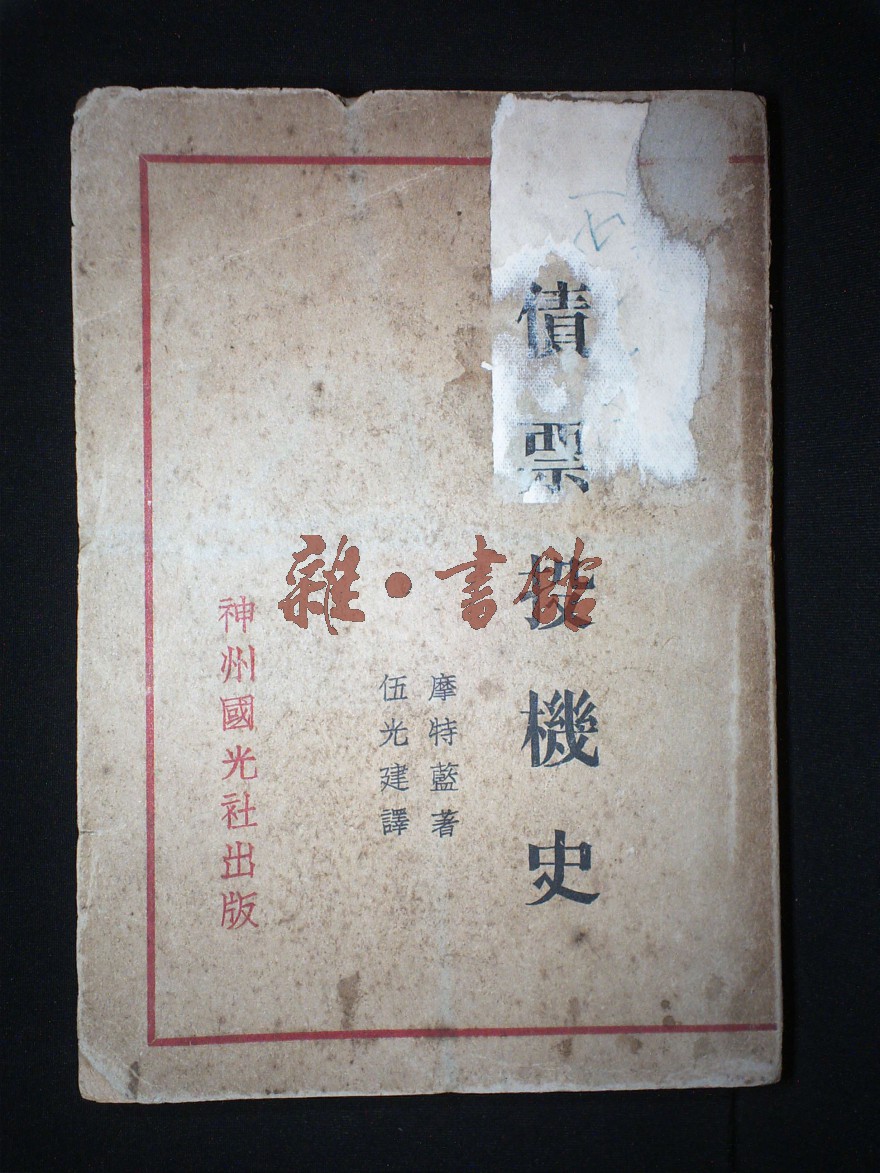 債票投機史
摩特藍著
伍光建譯
神州國光社出版
雜·書館